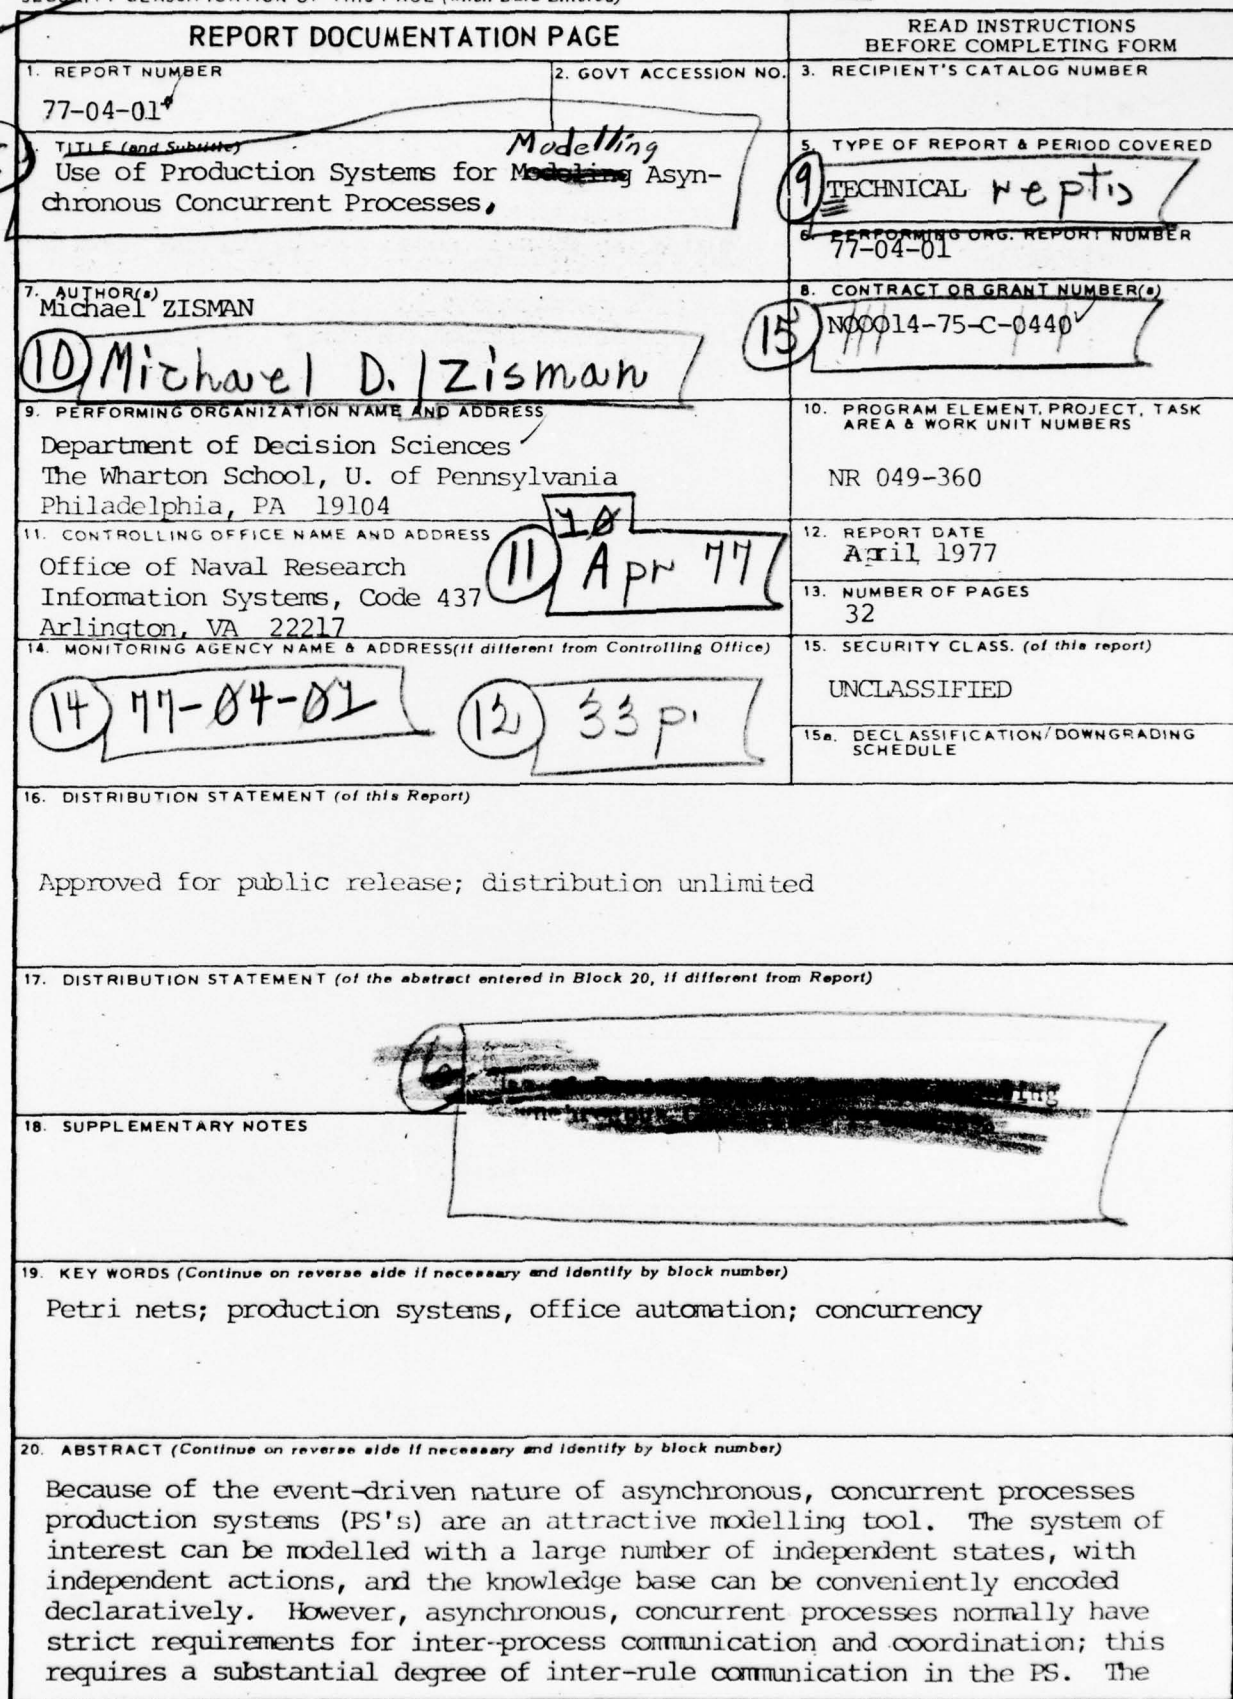 REPORT DOCUMENTATION PAGE
READ INSTRUCTIONS
BEFORE COMPLETING FORM
1. REPORT NUMBER
77-04-01
2. GOVT ACCESSION NO.
3. RECIPIENT'S CATALOG NUMBER
TITLE (and Subtitle)
Modelling
Use of Production Systems for Modeling Asyn-
chronous Concurrent Processes,
5. TYPE OF REPORT & PERIOD COVERED
9 TECHNICAL rept.
6. PERFORMING ORG. REPORT NUMBER
77-04-01
7. AUTHOR(s)
Michael ZISMAN
10 Michael D. Zisman
8. CONTRACT OR GRANT NUMBER(s)
15 N00014-75-C-0440
9. PERFORMING ORGANIZATION NAME AND ADDRESS
Department of Decision Sciences
The Wharton School, U. of Pennsylvania
Philadelphia, PA 19104
10. PROGRAM ELEMENT, PROJECT, TASK
AREA & WORK UNIT NUMBERS
NR 049-360
11. CONTROLLING OFFICE NAME AND ADDRESS
Office of Naval Research
Information Systems, Code 437
Arlington, VA 22217
10
11 Apr 77
12. REPORT DATE
April 1977
13. NUMBER OF PAGES
32
14. MONITORING AGENCY NAME & ADDRESS(if different from Controlling Office)
14 77-04-01
12 33 p.
15. SECURITY CLASS. (of this report)
UNCLASSIFIED
15a. DECLASSIFICATION/DOWNGRADING
SCHEDULE
16. DISTRIBUTION STATEMENT (of this Report)
Approved for public release; distribution unlimited
17. DISTRIBUTION STATEMENT (of the abstract entered in Block 20, if different from Report)
18. SUPPLEMENTARY NOTES
19. KEY WORDS (Continue on reverse side if necessary and identify by block number)
Petri nets; production systems, office automation; concurrency
20. ABSTRACT (Continue on reverse side if necessary and identify by block number)
Because of the event-driven nature of asynchronous, concurrent processes
production systems (PS's) are an attractive modelling tool. The system of
interest can be modelled with a large number of independent states, with
independent actions, and the knowledge base can be conveniently encoded
declaratively. However, asynchronous, concurrent processes normally have
strict requirements for inter-process communication and coordination; this
requires a substantial degree of inter-rule communication in the PS. The